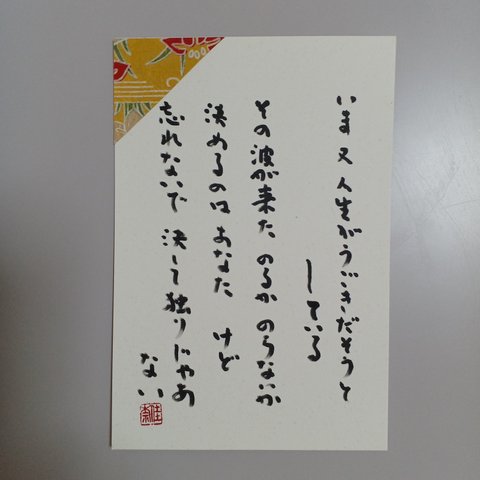 いま又人生がうごきだそうと
している
その波が来た のるか のらないか
決めるのは あなた けど
忘れないで 決して独りじゃあ
ない